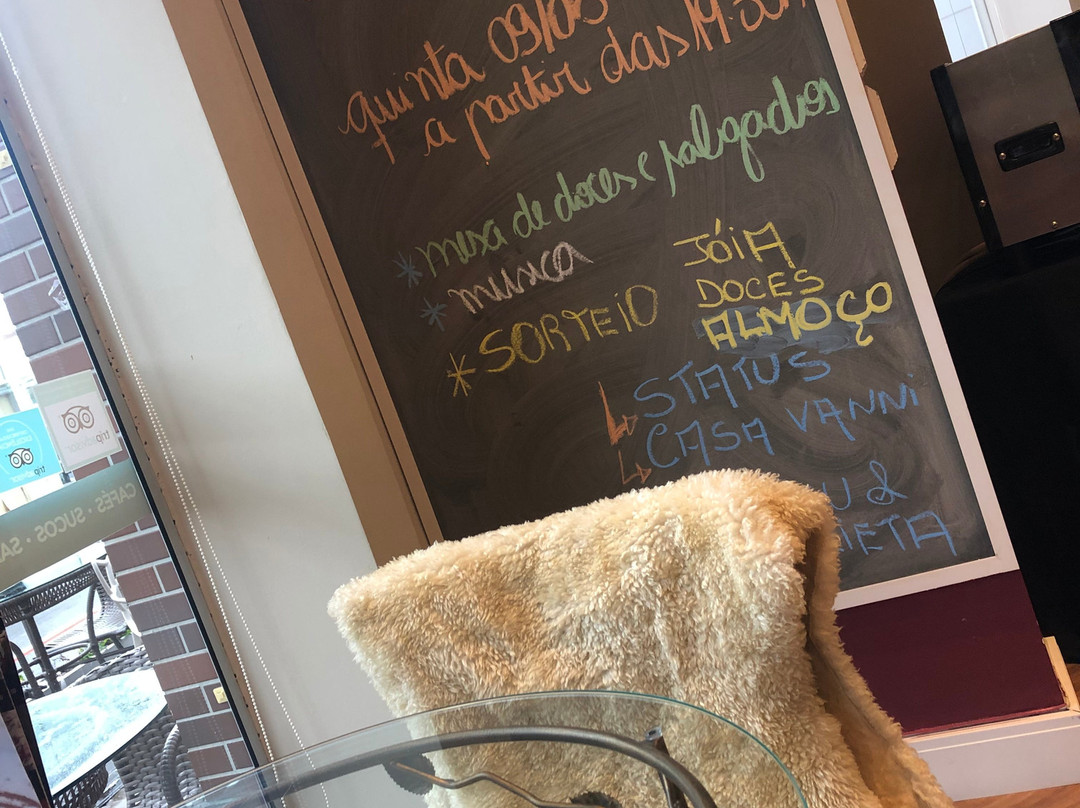 quinta 09/05
a partir das 19:30h
* mesa de doces e salgados
* música
* SORTEIO
JÓIA
DOCES
ALMOÇO
↳ STATUS
↳ CASA VANNI
U &
IETA
tripadvisor
tripadvisor
CAFÉS · SUCOS · SA